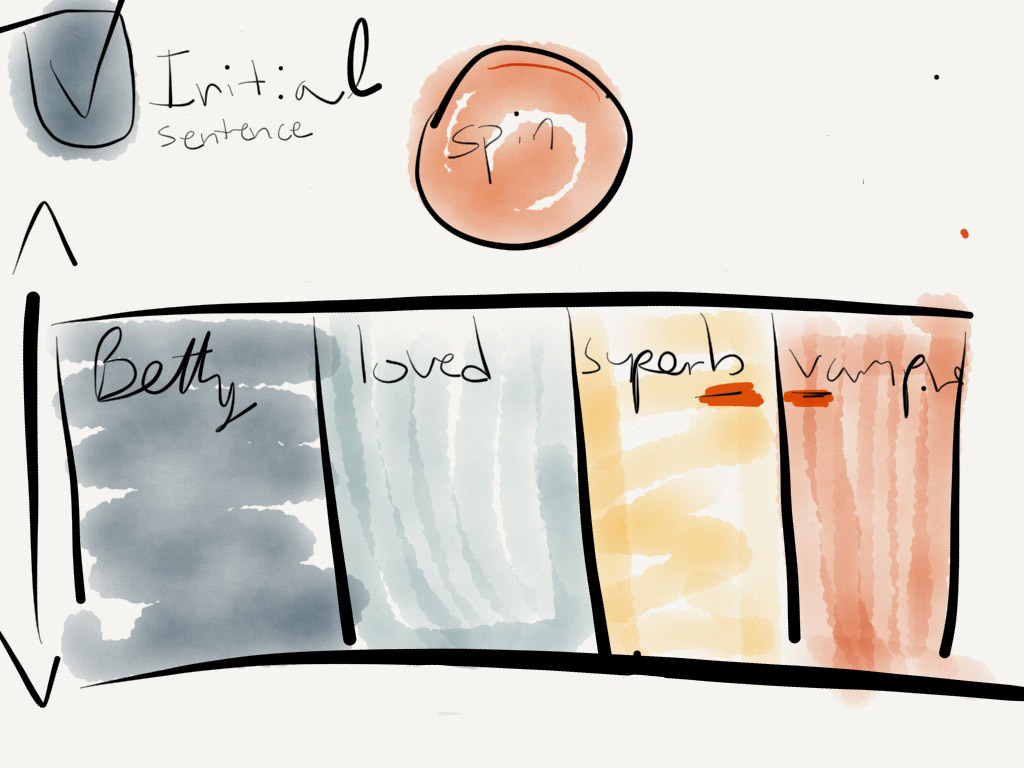 Initial
sentence
spin
Betty loved superb vampire